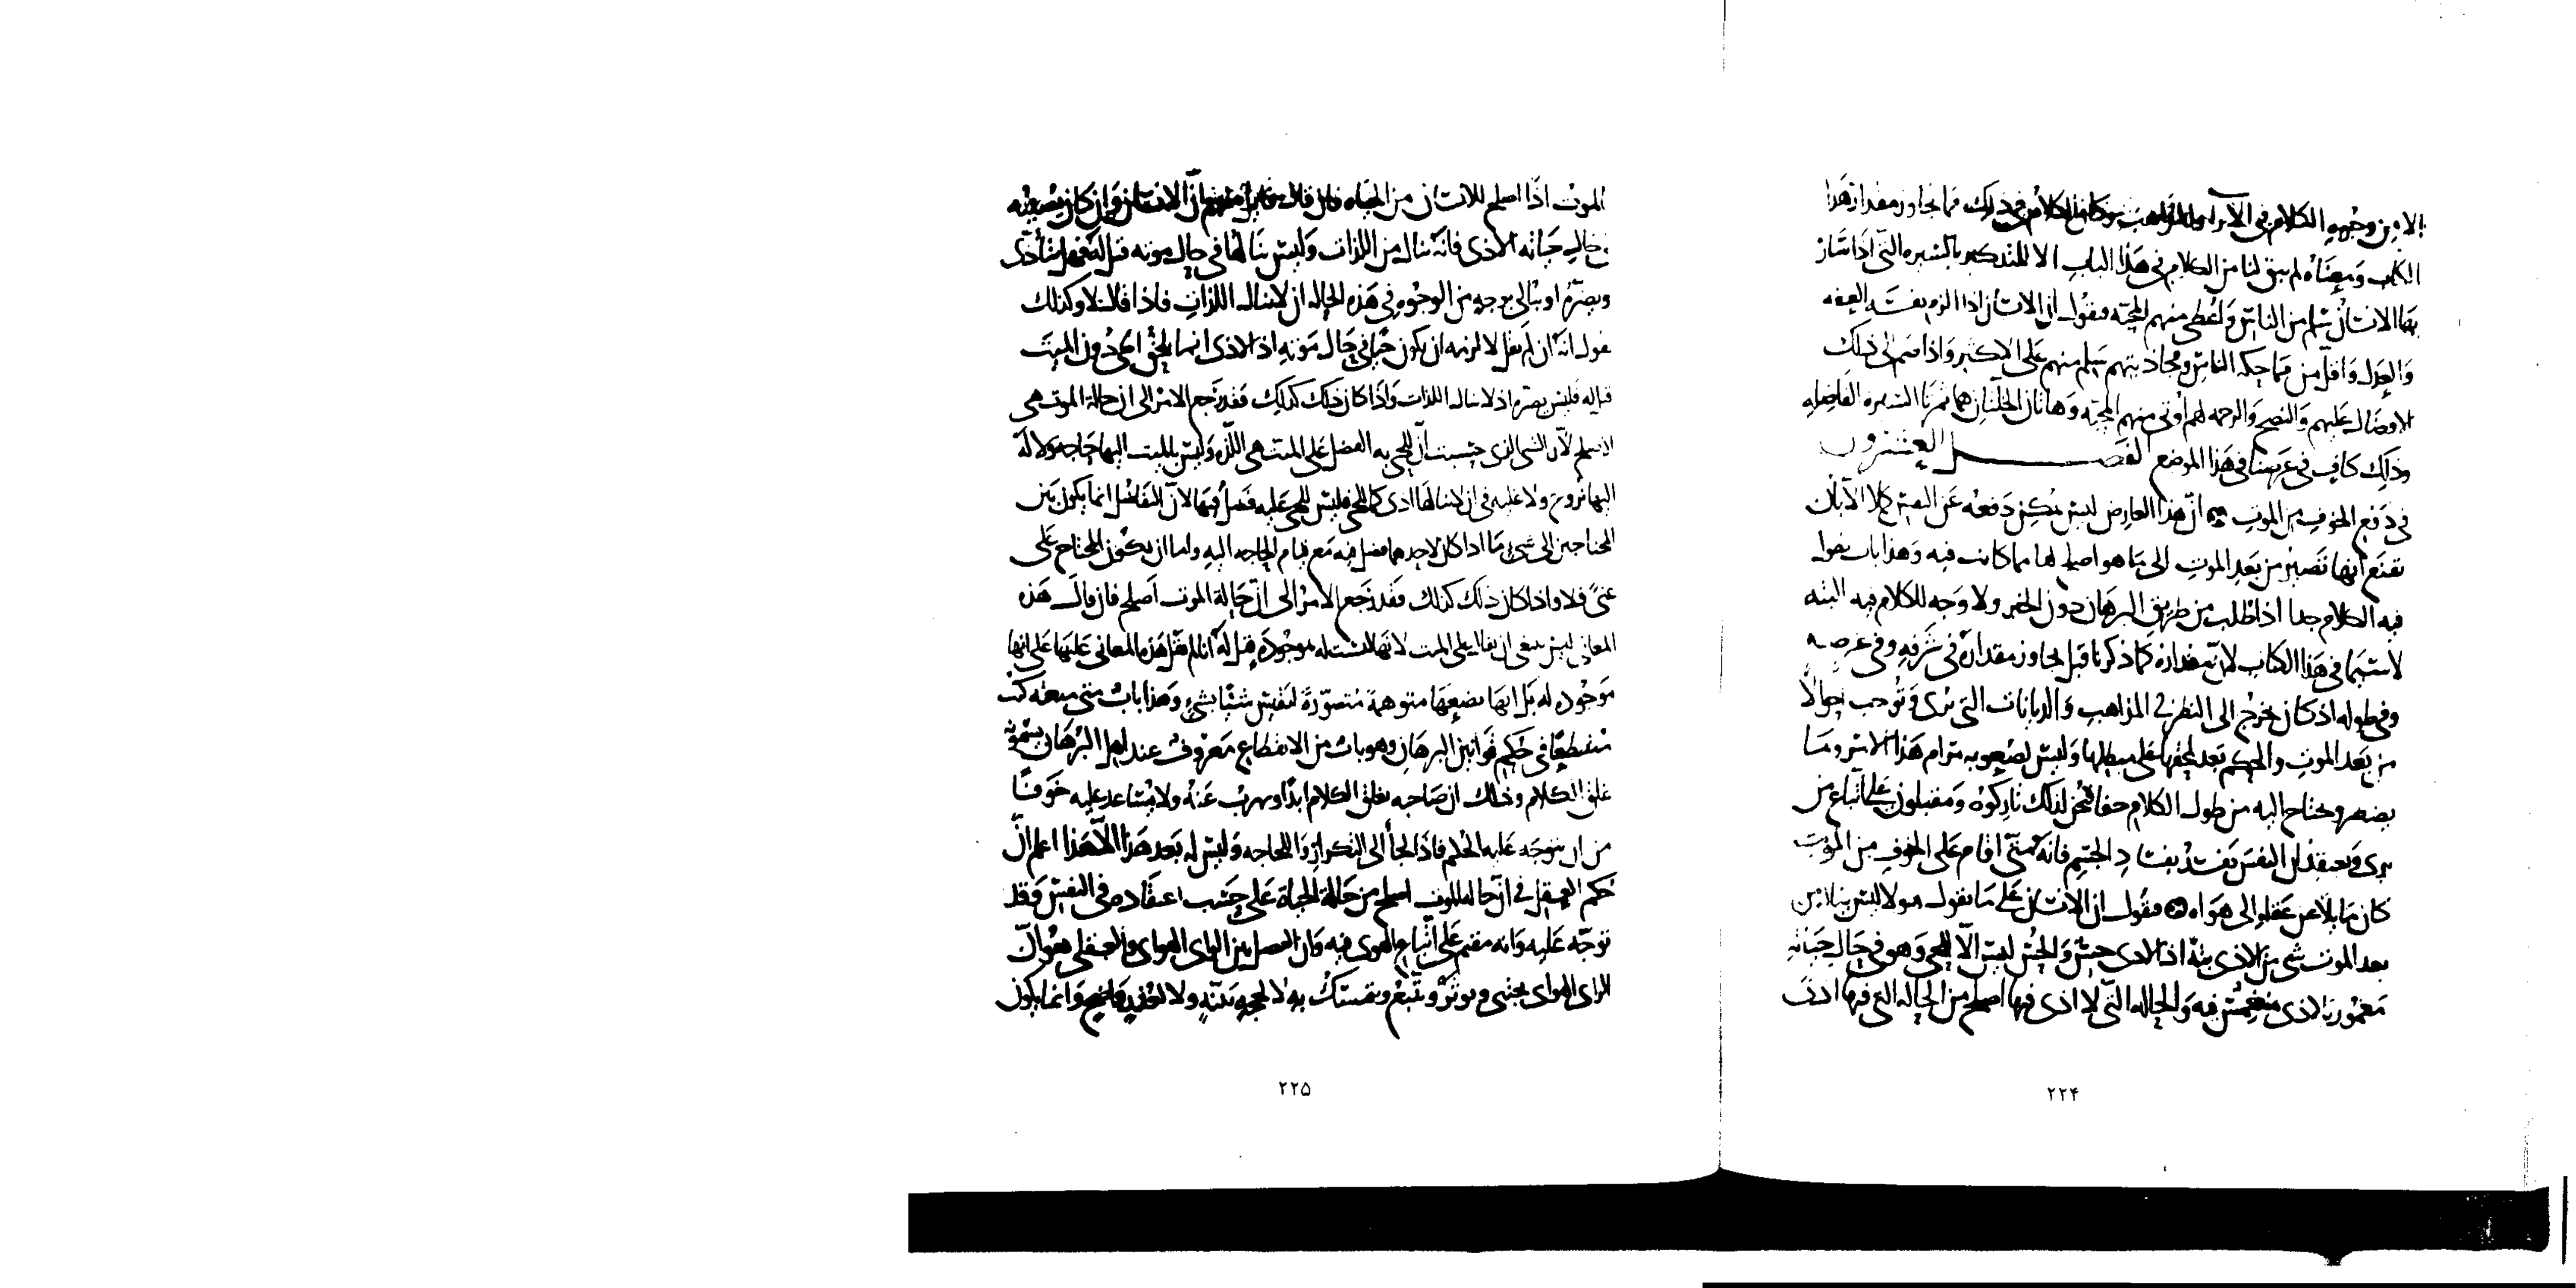 الا من وجهه الكلام في الآراء والمذاهب وكان الكلام في ذلك مما يجاوز مقدار هذا
الكتاب ومعناه لم يبق لنا من الكلام في هذا الباب الا التذكير بالسيره التي اذا سار
بها الانسان سلم من الناس واعطى منهم المحبه فنقول ان الانسان اذا الزم نفسه العفه
والعدل واقل من مماحكه الناس ومجاذبتهم سلم منهم على الاكثر واذا ضم الى ذلك
الافضال عليهم والنصح والرحمه لهم اوتى منهم المحبه وهاتان الخلتان هما ثمرتا السيره الفاضله
وذلك كاف في غرضنا في هذا الموضع الفصل العشرون
في دفع الخوف من الموت ان هذا العارض ليس يمكن دفعه عن النفس كملا الا بان
تقنع انها تصير من بعد الموت الى ما هو اصلح لها مما كانت فيه وهذا باب يطول
فيه الكلام جدا اذا طلب من طريق البرهان دون الخبر ولا وجه للكلام فيه البته
لاسيما في هذا الكتاب لان مقداره كما ذكرنا قبل يجاوز مقداره في شرفه وفي عرضه
وفي طوله اذ كان يخرج الى النظر في المذاهب والديانات التي ترى وتوجب احوالا
من بعد الموت والحكم بعد لمحقها على مبطلها وليس لصعوبه مرام هذا الامر وما
يضطر ويحتاج اليه من طول الكلام خفا فنحن لذلك تاركوه ومقبلون على اقناع من
يرى ويعتقد ان النفس تفسد بفساد الجسم فانه متى اقام على الخوف من الموت
كان مايلا عن عقله الى هواه فنقول ان الانسان على ما يقول هولا ليس يناله من
بعد الموت شى من الاذى بته اذ الاذى حس والحس ليس الا للحى وهو في حال حياته
مغمور بالاذى منغمس فيه والحاله التي لا اذى فيها اصلح من الحاله التي فيها اذى
الموت اذا اصلح للانسان من الحياه فان قال قايل منهم ان الانسان وان كان يصيبه
في حال حياته الاذى فانه ينال من اللذات وليس ينالها في حال موته قيل له فهل يتأذى
ويضره او يبالى بوجه من الوجوه في هذه الحاله ان لا ينال اللذات فاذا قال لا وكذلك
يقول لانه ان لم يقل لا لزمه ان يكون حيا في حال موته اذ الاذى انما يلحق الحى دون الميت
قيل له فليس يضره اذ لا يناله اللذات واذا كان ذلك كذلك فقد رجع الامر الى ان حالة الموت هي
الاصلح لان الشى الذى حسبت ان للحى به الفضل على الميت هي اللذه وليس للميت اليها حاجه ولا له
اليها نزوع ولا عليه في ان لا ينالها اذى كما للحى فليس للحى عليه فضل فيها لان التفاضل انما يكون بين
المحتاجين الى شئ ما اذا كان لاحدهما فضل فيه مع قيام الحاجه اليه واما ان يكون للمحتاج على
غنى فلا واذا كان ذلك كذلك فقد رجع الامر الى ان حالة الموت اصلح فان قال هذه
المعانى ليس ينبغى ان يقال على الميت لانها ليست له موجودة قيل له انا لم نقل هذه المعانى عليها على انها
موجوده له بل انها نضعها متوهمة متصورة لنقيس شيئا بشئ وهذا باب متى منعته كنت
منقطعا في حكم قوانين البرهان وهو باب من الانقطاع معروف عند اهل البرهان يسمونه
غلق الكلام وذلك ان صاحبه يغلق الكلام ابدا ويهرب عنه ولا يساعد عليه خوفا
من ان يتوجه عليه الحكم فاذا لجأ الى التكرار واللجاجه وليس له بعد هذا الا هذا اعلم ان
حكم العقل في ان حالة الموت اصلح من حالة الحياة على حسب اعتقاده في النفس وقد
توجه عليه وانه مقيم على اتباع الهوى فيه فان الفصل بين الراى الهواى والعقلى هو ان
الراى الهواى يجتبى ويوثر ويتبع ويتمسك به لا لحجه بينه ولا لعذر واضح وانما يكون
۲۲۴
۲۲۵